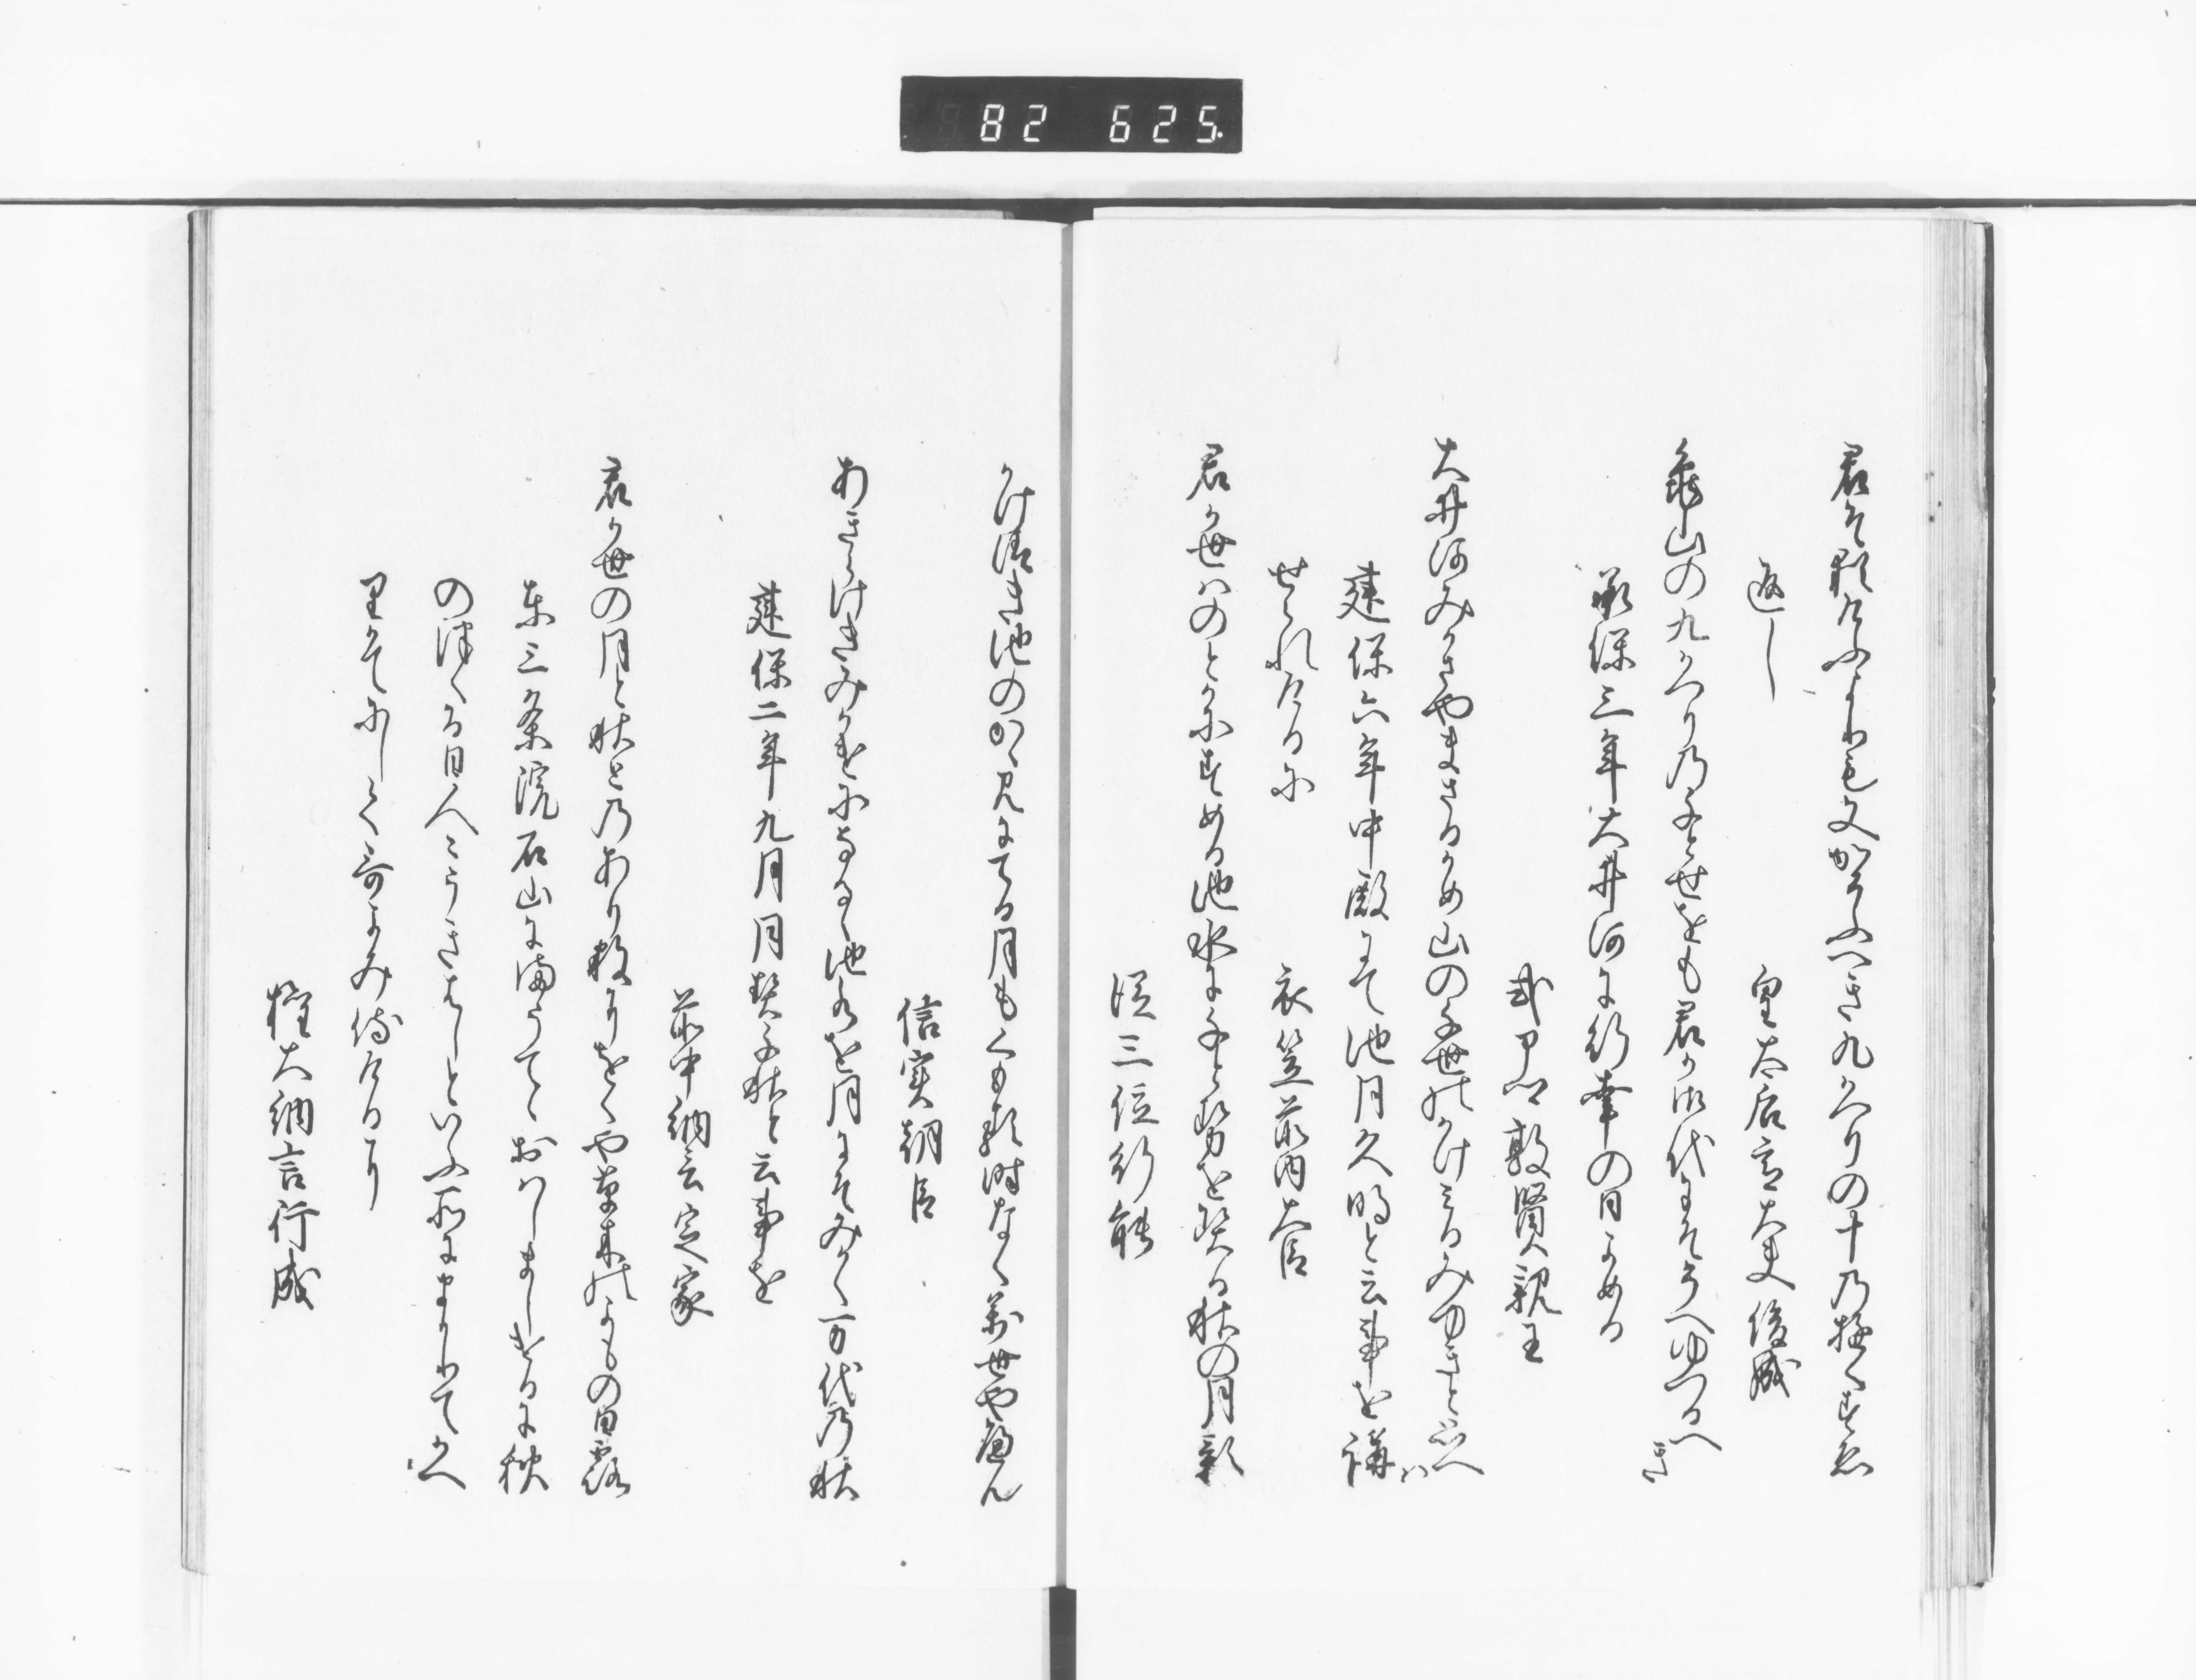 82 625.
君そ猶けふよりも又かそふへき九かへりの十乃ゆくすゑ
返し
皇太后宮大夫俊成
亀山の九かへり乃千とせをも君か御代にそそへゆつるへき
承保三年大井河に行幸の日よめる
式部卿敦賢親王
大井河みかさやまさるかめ山の千世のかけみるみゆきと思へハ
建保六年中殿にて池月久明と云事を講
せられけるに
衣笠前内大臣
君か世ハのとかにすめる池水に千とせを契る秋の月影
従三位行能
かけ清き池のかゝみにてる月もくもる時なく万世やへん
信実朝臣
あきらけきみかけになるゝ池水を月にそみかく万代乃秋
建保二年九月月契千秋と云事を
前中納言定家
君か世の月と秋との(あり)数にをくや草木のよもの白露
東三条院石山にまうてゝおハしましけるに秋
のはつる日人々うきはしといふ所にまかりてかへ
りかてにして哥よみ侍けるに
権大納言行成